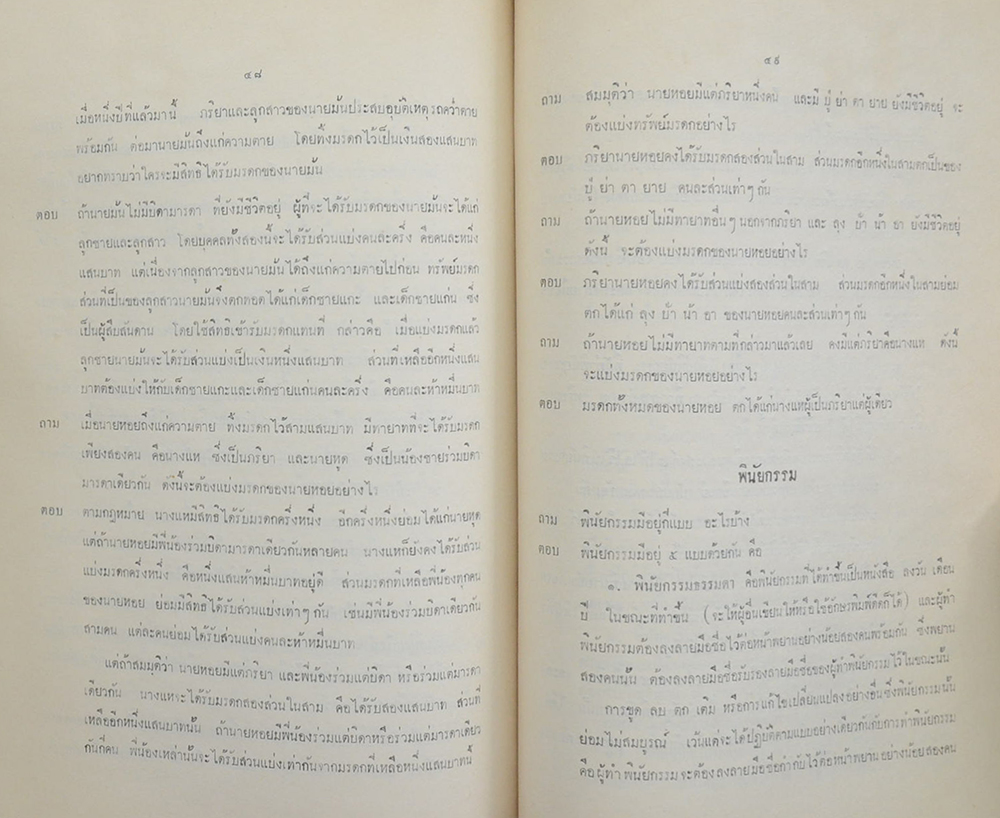 ๔๘
เมื่อหนึ่งปีที่แล้วมานี้ ภริยาและลูกสาวของนายมั่นประสบอุบัติเหตุรถคว่ำตาย
พร้อมกัน ต่อมานายมั่นถึงแก่ความตาย โดยทิ้งมรดกไว้เป็นเงินสองแสนบาท
อยากทราบว่าใครจะมีสิทธิได้รับมรดกของนายมั่น
ตอบ ถ้านายมั่นไม่มีบิดามารดา ที่ยังมีชีวิตอยู่ ผู้ที่จะได้รับมรดกของนายมั่นจะได้แก่
ลูกชายและลูกสาว โดยบุคคลทั้งสองนี้จะได้รับส่วนแบ่งคนละครึ่ง คือคนละหนึ่ง
แสนบาท แต่เนื่องจากลูกสาวของนายมั่นได้ถึงแก่ความตายไปก่อน ทรัพย์มรดก
ส่วนที่เป็นของลูกสาวนายมั่นจึงตกทอดได้แก่เด็กชายแกะ และเด็กชายแก่น ซึ่ง
เป็นผู้สืบสันดาน โดยใช้สิทธิเข้ารับมรดกแทนที่ กล่าวคือ เมื่อแบ่งมรดกแล้ว
ลูกชายนายมั่นจะได้รับส่วนแบ่งเป็นเงินหนึ่งแสนบาท ส่วนที่เหลืออีกหนึ่งแสน
บาทต้องแบ่งให้กับเด็กชายแกะและเด็กชายแก่นคนละครึ่ง คือคนละห้าหมื่นบาท
ถาม เมื่อนายหอยถึงแก่ความตาย ทิ้งมรดกไว้สามแสนบาท มีทายาทที่จะได้รับมรดก
เพียงสองคน คือนางแห ซึ่งเป็นภริยา และนายหุด ซึ่งเป็นน้องชายร่วมบิดา
มารดาเดียวกัน ดังนี้จะต้องแบ่งมรดกของนายหอยอย่างไร
ตอบ ตามกฎหมาย นางแหมีสิทธิได้รับมรดกครึ่งหนึ่ง อีกครึ่งหนึ่งย่อมได้แก่นายหุด
แต่ถ้านายหอยมีพี่น้องร่วมบิดามารดาเดียวกันหลายคน นางแหก็ยังคงได้รับส่วน
แบ่งมรดกครึ่งหนึ่ง คือหนึ่งแสนห้าหมื่นบาทอยู่ดี ส่วนมรดกที่เหลือพี่น้องทุกคน
ของนายหอย ย่อมมีสิทธิได้รับส่วนแบ่งเท่าๆ กัน เช่นมีพี่น้องร่วมบิดาเดียวกัน
สามคน แต่ละคนย่อมได้รับส่วนแบ่งคนละห้าหมื่นบาท
แต่ถ้าสมมุติว่า นายหอยมีแต่ภริยา และพี่น้องร่วมแต่บิดา หรือร่วมแต่มารดา
เดียวกัน นางแหจะได้รับมรดกสองส่วนในสาม คือได้รับสองแสนบาท ส่วนที่
เหลืออีกหนึ่งแสนบาทนั้น ถ้านายหอยมีพี่น้องร่วมแต่บิดาหรือร่วมแต่มารดาเดียว
กันกี่คน พี่น้องเหล่านั้นจะได้รับส่วนแบ่งเท่ากันจากมรดกที่เหลือหนึ่งแสนบาทนี้
๔๙
ถาม สมมุติว่า นายหอยมีแต่ภริยาหนึ่งคน และมี ปู่ ย่า ตา ยาย ยังมีชีวิตอยู่ จะ
ต้องแบ่งทรัพย์มรดกอย่างไร
ตอบ ภริยานายหอยคงได้รับมรดกสองส่วนในสาม ส่วนมรดกอีกหนึ่งในสามตกเป็นของ
ปู่ ย่า ตา ยาย คนละส่วนเท่าๆ กัน
ถาม ถ้านายหอยไม่มีทายาทอื่นๆ นอกจากภริยา และ ลุง ป้า น้า อา ยังมีชีวิตอยู่
ดังนี้ จะต้องแบ่งมรดกของนายหอยอย่างไร
ตอบ ภริยานายหอยคงได้รับส่วนแบ่งสองส่วนในสาม ส่วนมรดกอีกหนึ่งในสามย่อม
ตกได้แก่ ลุง ป้า น้า อา ของนายหอยคนละส่วนเท่าๆ กัน
ถาม ถ้านายหอยไม่มีทายาทตามที่กล่าวมาแล้วเลย คงมีแต่ภริยาคือนางแห ดังนี้
จะแบ่งมรดกของนายหอยอย่างไร
ตอบ มรดกทั้งหมดของนายหอย ตกได้แก่นางแหผู้เป็นภริยาแต่ผู้เดียว
พินัยกรรม
ถาม พินัยกรรมมีอยู่กี่แบบ อะไรบ้าง
ตอบ พินัยกรรมมีอยู่ ๕ แบบด้วยกัน คือ
๑. พินัยกรรมธรรมดา คือพินัยกรรมที่ได้ทำขึ้นเป็นหนังสือ ลงวัน เดือน
ปี ในขณะที่ทำขึ้น (จะให้ผู้อื่นเขียนให้หรือใช้อักษรพิมพ์ดีดก็ได้) และผู้ทำ
พินัยกรรมต้องลงลายมือชื่อไว้ต่อหน้าพยานอย่างน้อยสองคนพร้อมกัน ซึ่งพยาน
สองคนนั้น ต้องลงลายมือชื่อรับรองลายมือชื่อของผู้ทำพินัยกรรมไว้ในขณะนั้น
การขูด ลบ ตก เติม หรือการแก้ไขเปลี่ยนแปลงอย่างอื่นซึ่งพินัยกรรมนั้น
ย่อมไม่สมบูรณ์ เว้นแต่จะได้ปฏิบัติตามแบบอย่างเดียวกันกับการทำพินัยกรรม
คือผู้ทำพินัยกรรมจะต้องลงลายมือชื่อกำกับไว้ต่อหน้าพยานอย่างน้อยสองคน